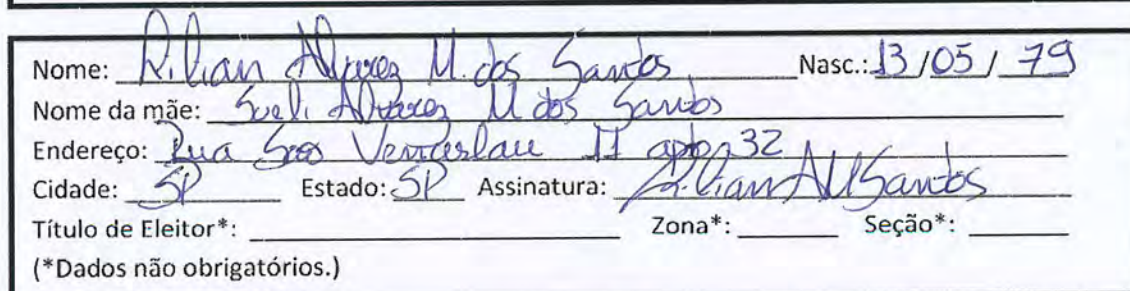 Nome: Lilian Alvarez M. dos Santos Nasc.: 13/05/79
Nome da mãe: Sueli Alvarez M dos Santos
Endereço: Rua São Venceslau 11 apto 32
Cidade: SP Estado: SP Assinatura: Lilian AMSantos
Título de Eleitor*: Zona*: Seção*:
(*Dados não obrigatórios.)